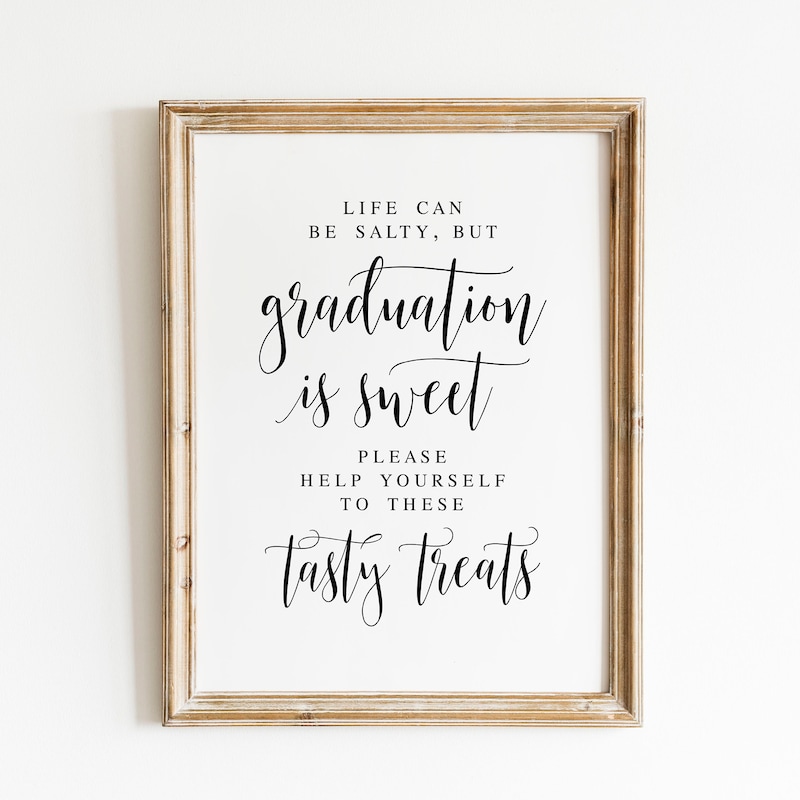 LIFE CAN
BE SALTY, BUT
graduation
is sweet
PLEASE
HELP YOURSELF
TO THESE
tasty treats